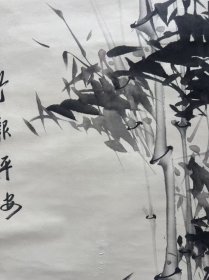 竹报平安